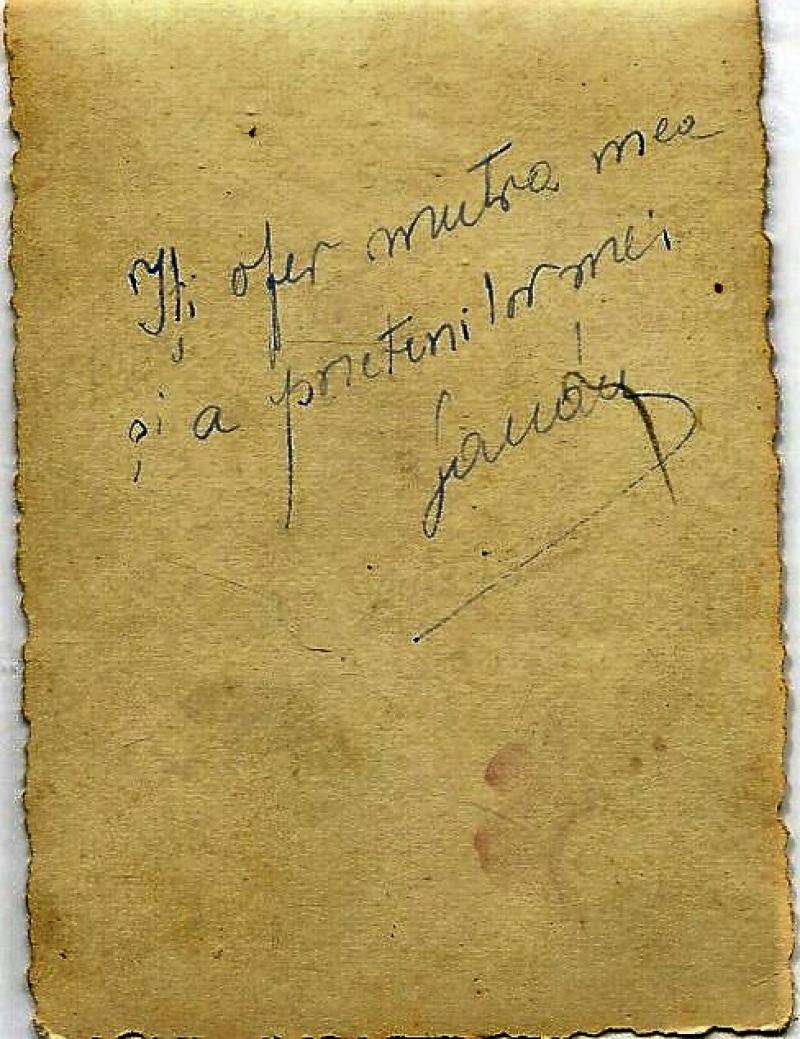 Iți ofer mutra mea
și a prietenilor mei